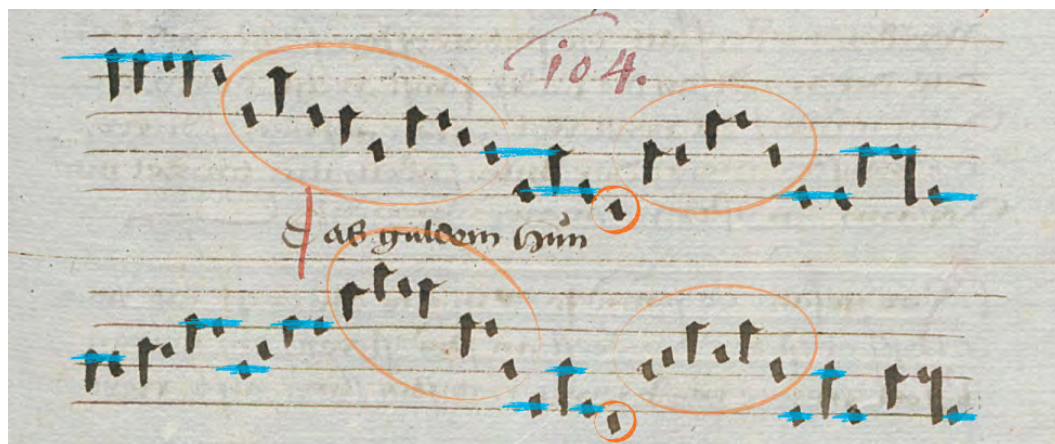 104.
Das guldein hŭn